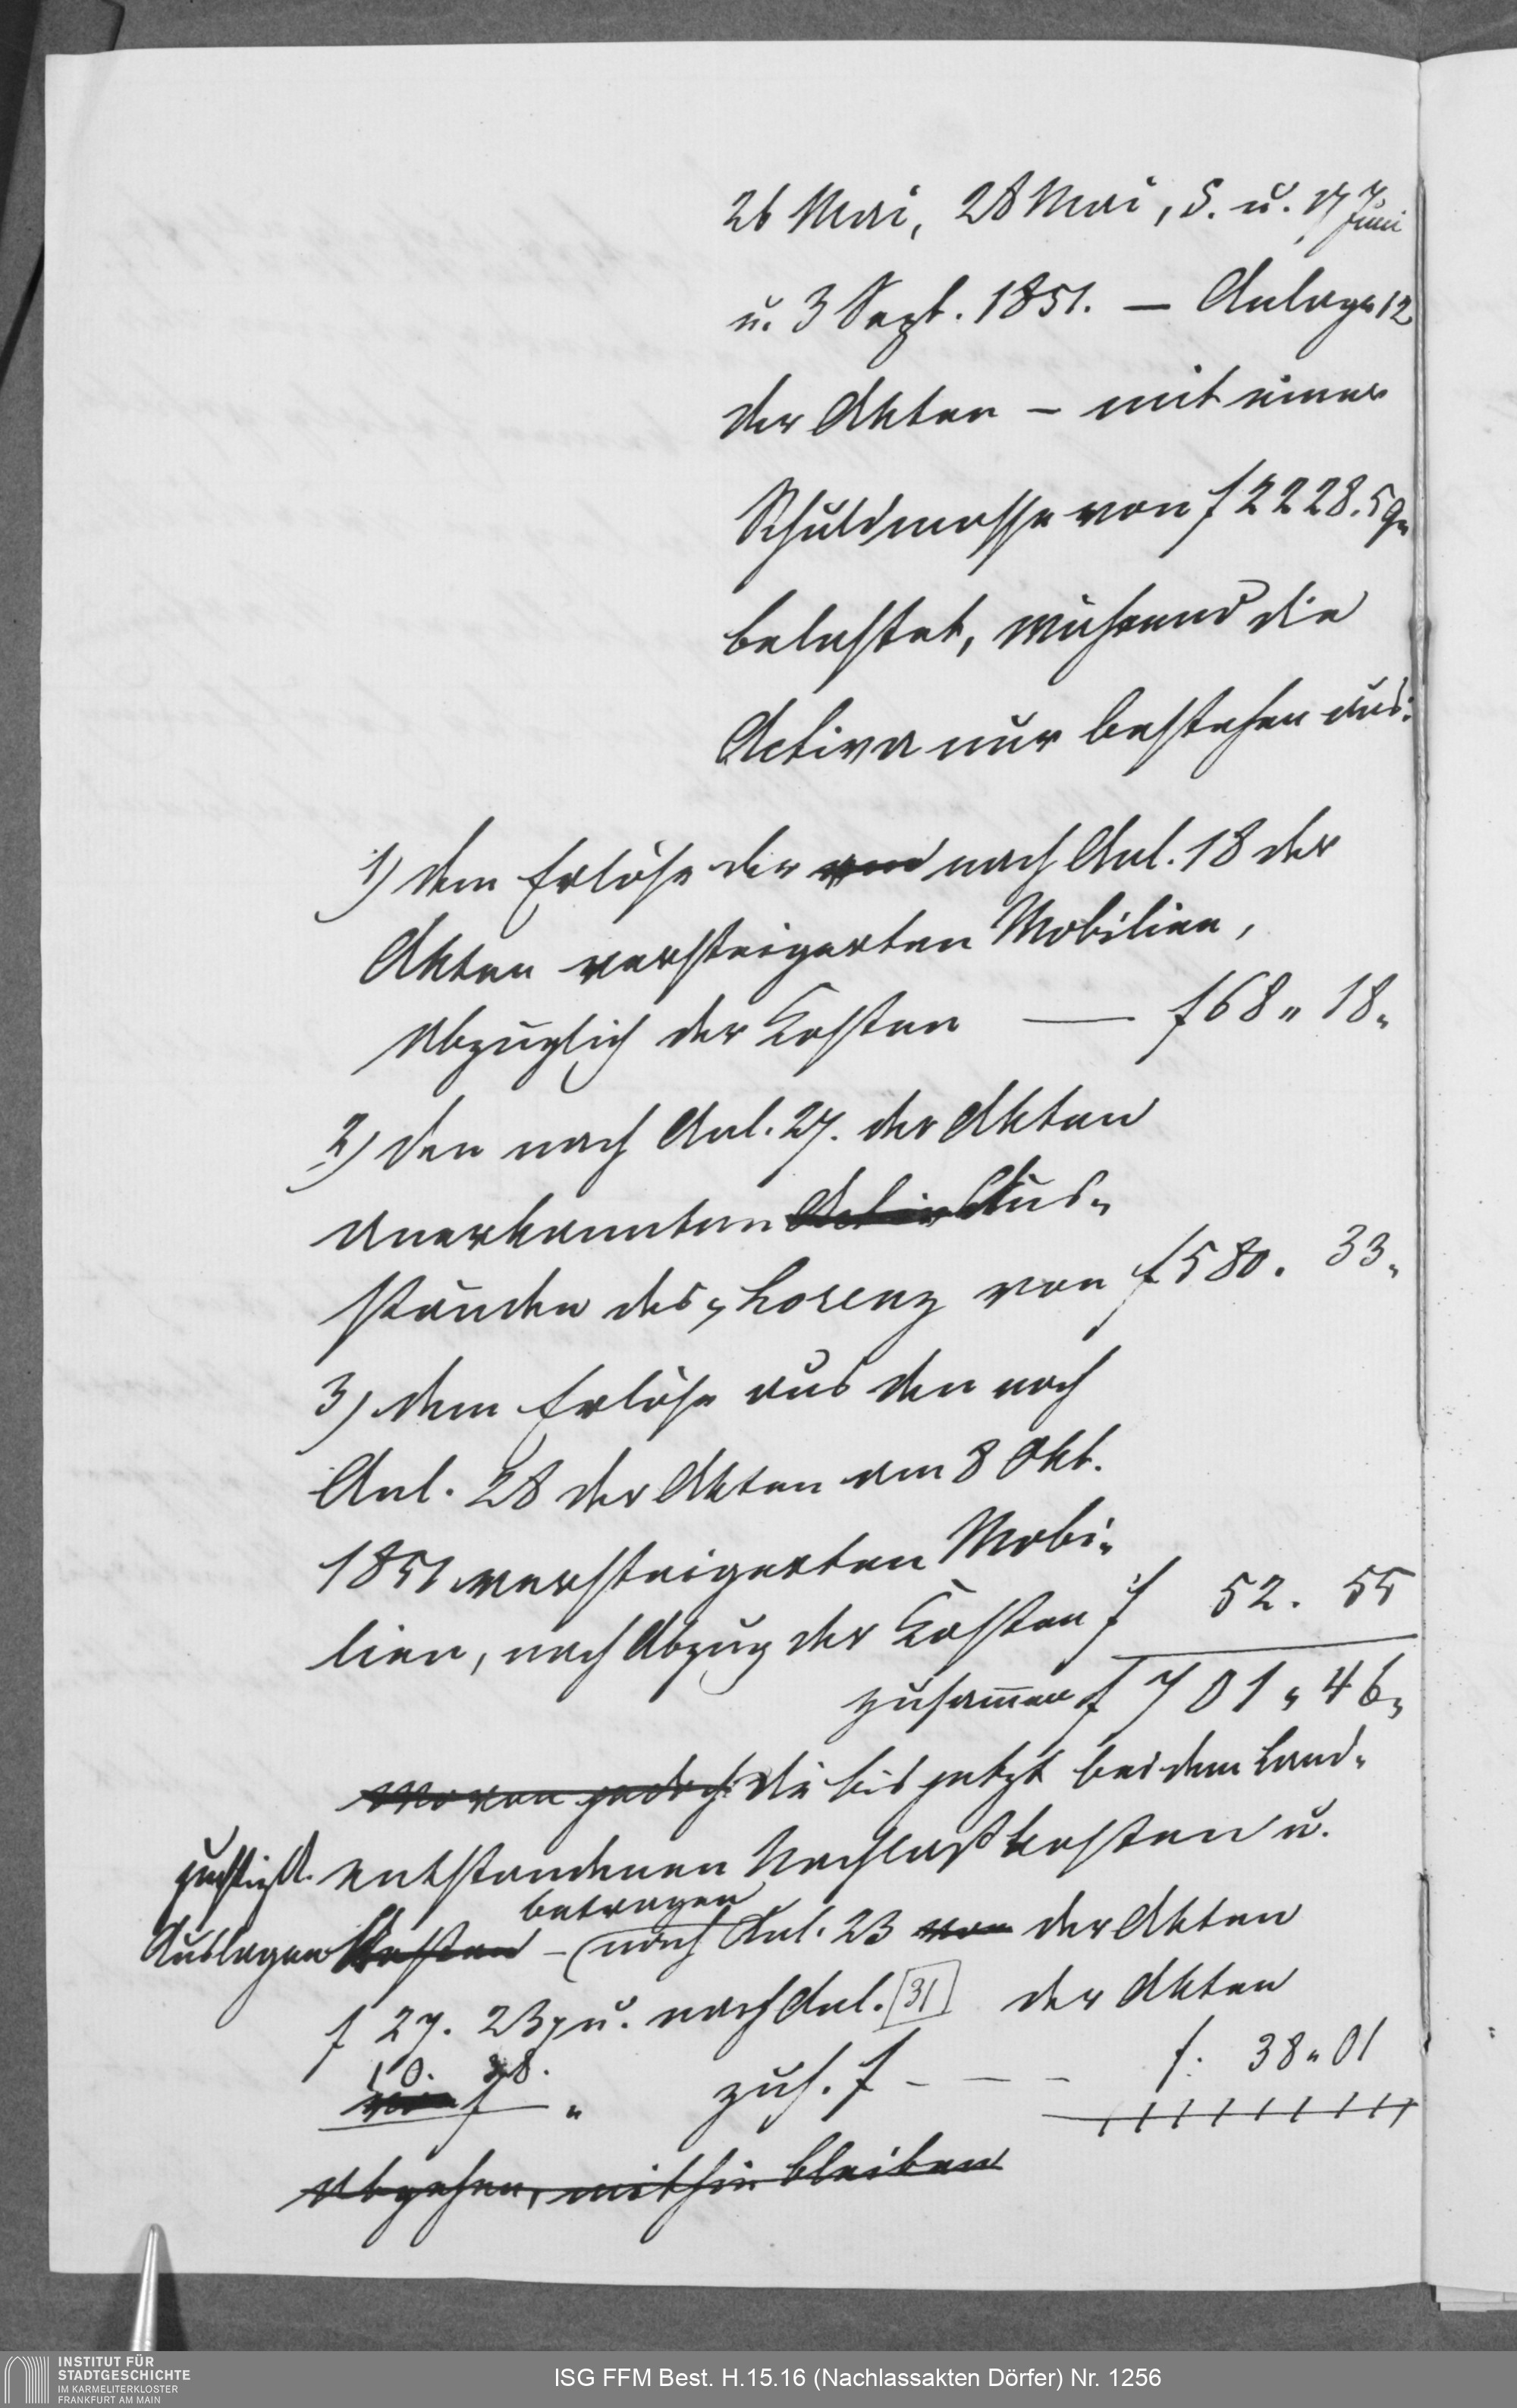 26 Mai, 28 Mai, 5. u. 17 Juni
u. 3 Sept. 1851. — Anlage 12
der Akten – mit einer
Schuldmasse von f 2228. 59
belastet, während die
Activa nur bestehen aus:
1) dem Erlöse der nach Anl. 18 der
Akten versteigerten Mobilien,
abzüglich der Kosten — f 68 " 18 "
2) den nach Anl. 27. der Akten
anerkannten Activ Aus-
ständen des, Lorenz von f 580. 33 "
3) dem Erlöse aus den nach
Anl. 28 der Akten am 8 Okt.
1851 versteigerten Mobi-
lien, nach Abzug der Kosten f 52. 55
zusammen f 701 " 46 "
wovon jedoch die bis jetzt bei dem Land-
justizA. entstandenen Nachlaßkosten u.
betragen
Auslagen Kosten – (nach Anl. 23 von der Akten
f 27. 23, u. nach Anl. 31 der Akten
10. 38.
f " zus. f – – – f. 38 " 01
abgehen, mithin bleiben
INSTITUT FÜR
STADTGESCHICHTE
IM KARMELITERKLOSTER
FRANKFURT AM MAIN
ISG FFM Best. H.15.16 (Nachlassakten Dörfer) Nr. 1256